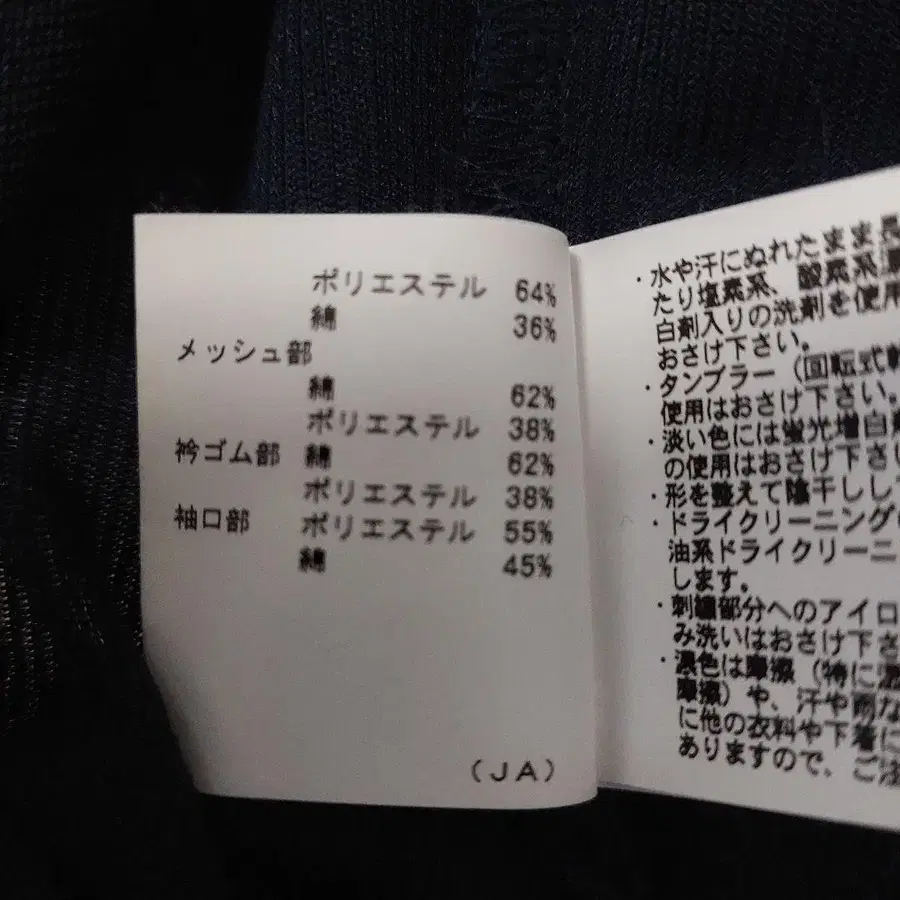 ポリエステル 64%
綿 36%
メッシュ部
綿 62%
ポリエステル 38%
衿ゴム部 綿 62%
ポリエステル 38%
袖口部 ポリエステル 55%
綿 45%
(JA)
・水や汗にぬれたまま長
たり塩素系、酸素系漂
白剤入りの洗剤を使用
おさけ下さい。
・タンブラー(回転式乾
使用はおさけ下さい。
・淡い色には蛍光増白剤
の使用はおさけ下さい
・形を整えて陰干しし
・ドライクリーニングの
油系ドライクリーニ
します。
・刺繍部分へのアイロ
み洗いはおさけ下さ
・濃色は摩擦(特に湿
摩擦)や、汗や雨な
に他の衣料や下着に
ありますので、ご注